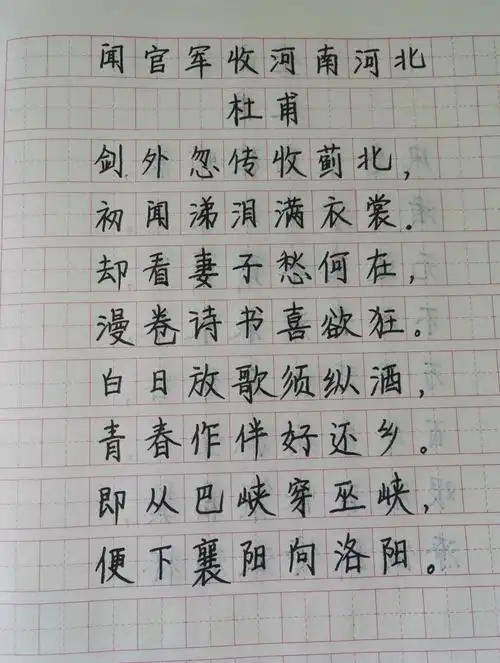 闻官军收河南河北
杜甫
剑外忽传收蓟北，
初闻涕泪满衣裳.
却看妻子愁何在，
漫卷诗书喜欲狂。
白日放歌须纵酒，
青春作伴好还乡。
即从巴峡穿巫峡，
便下襄阳向洛阳。